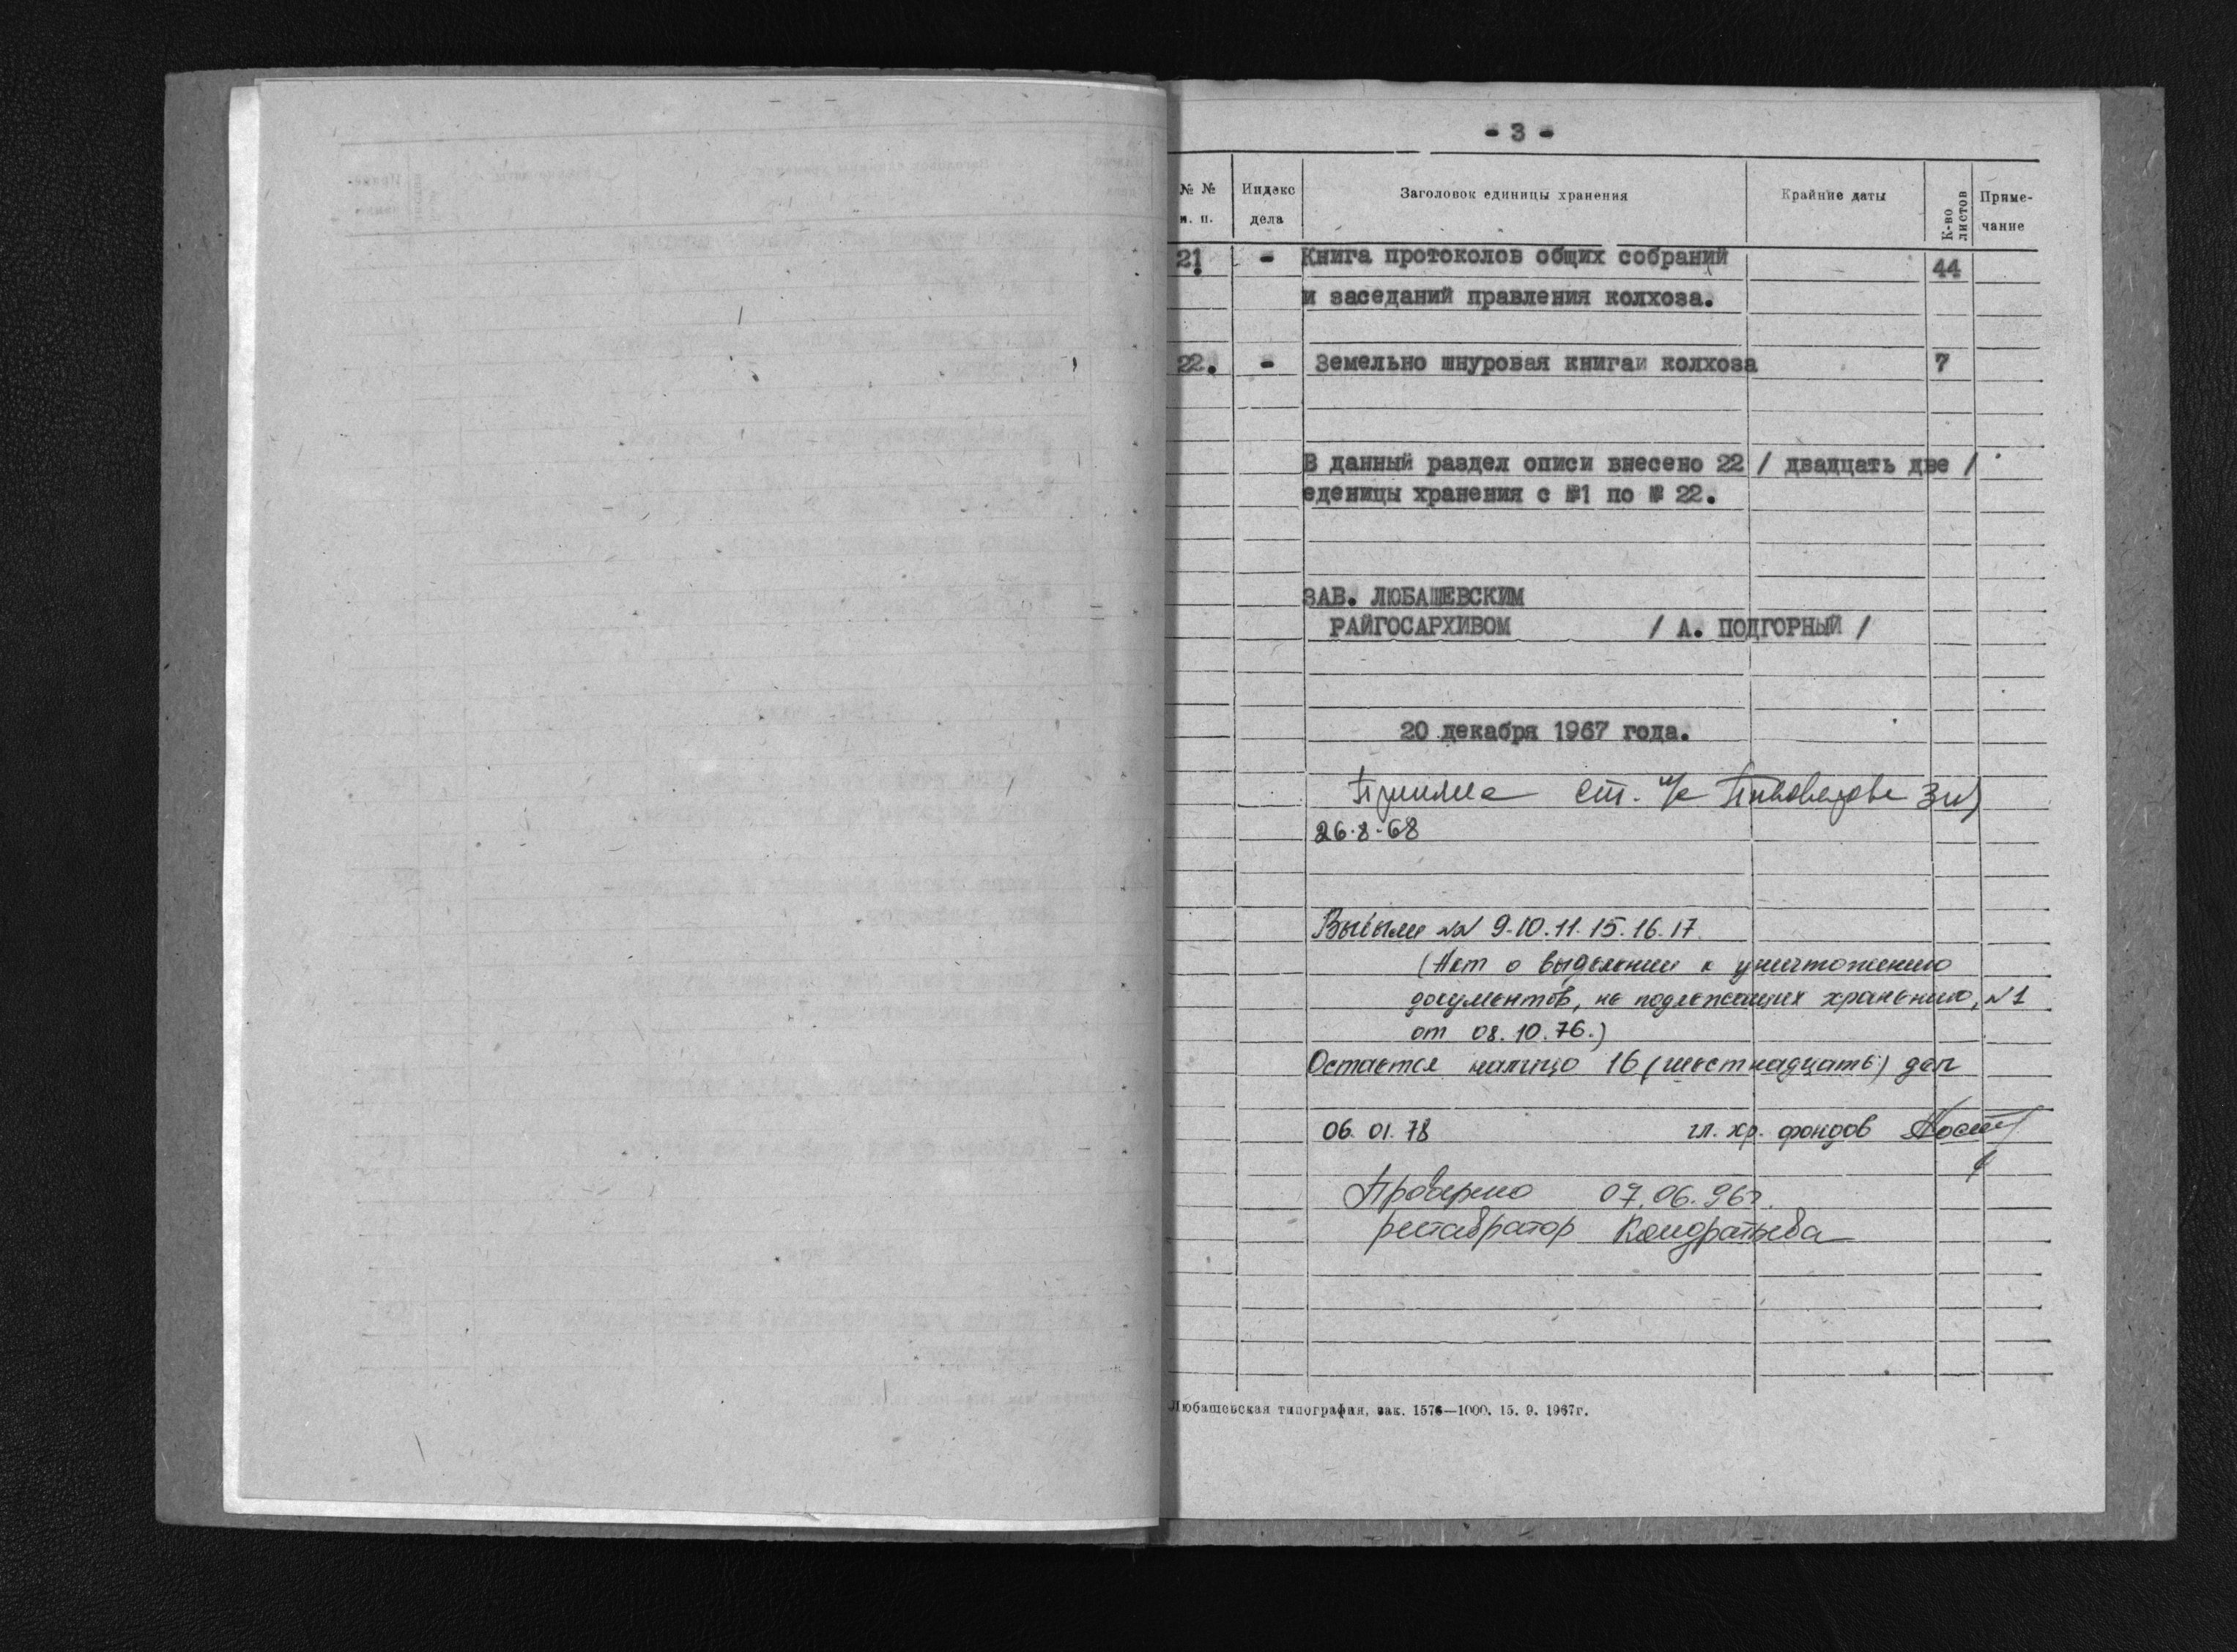 - 3 -
№ № п. п. Индекс дела Заголовок единицы хранения Крайние даты К-во листов Приме-чание
21 - Книга протоколов общих собраний 44
и заседаний правления колхоза.
22. - Земельно шнуровая книгаи колхоза 7
В данный раздел описи внесено 22 / двадцать две /
еденицы хранения с №1 по № 22.
ЗАВ. ЛЮБАШЕВСКИМ
РАЙГОСАРХИВОМ / А. ПОДГОРНЫЙ /
20 декабря 1967 года.
Приняла ст. н/с
26.8.68
Выбыли №№ 9.10.11.15.16.17.
(Акт о выделении к уничтожению
документов, не подлежащих хранению, №1
от 08.10.76.)
Остается налицо 16 (шестнадцать) дел
06.01.78 гл. хр. фондов
Проверено 07.06.96г.
реставратор Кондратьева
Любашевская типография, зак. 1576—1000. 15. 9. 1967г.